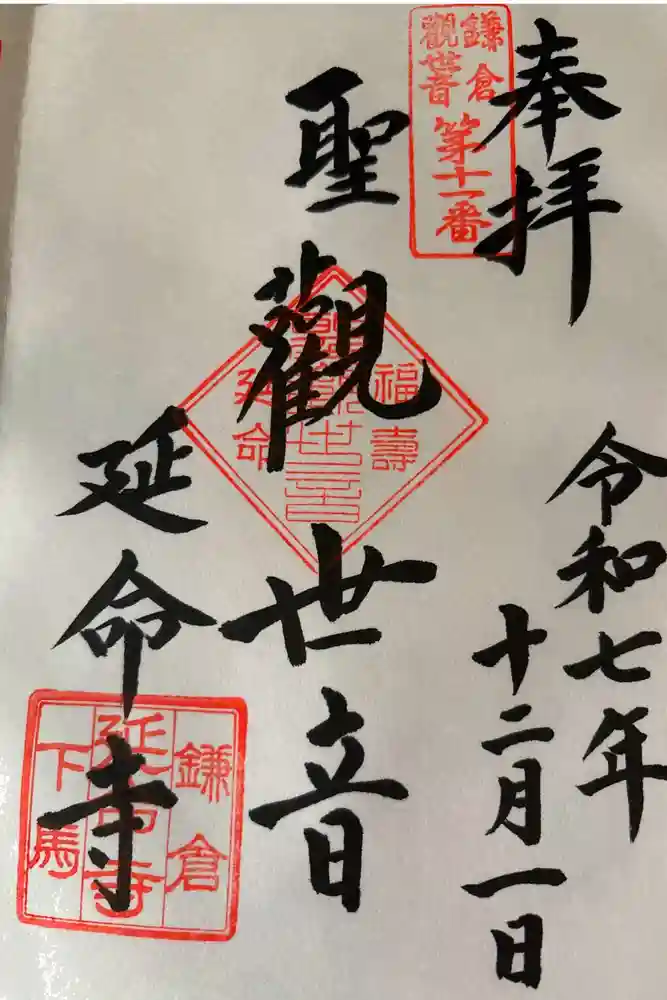 奉拝
鎌倉
觀世音
第十一番
令和七年
十二月一日
聖觀世音
福壽
聖觀世音
延命
延命寺
鎌倉
延命寺
下馬